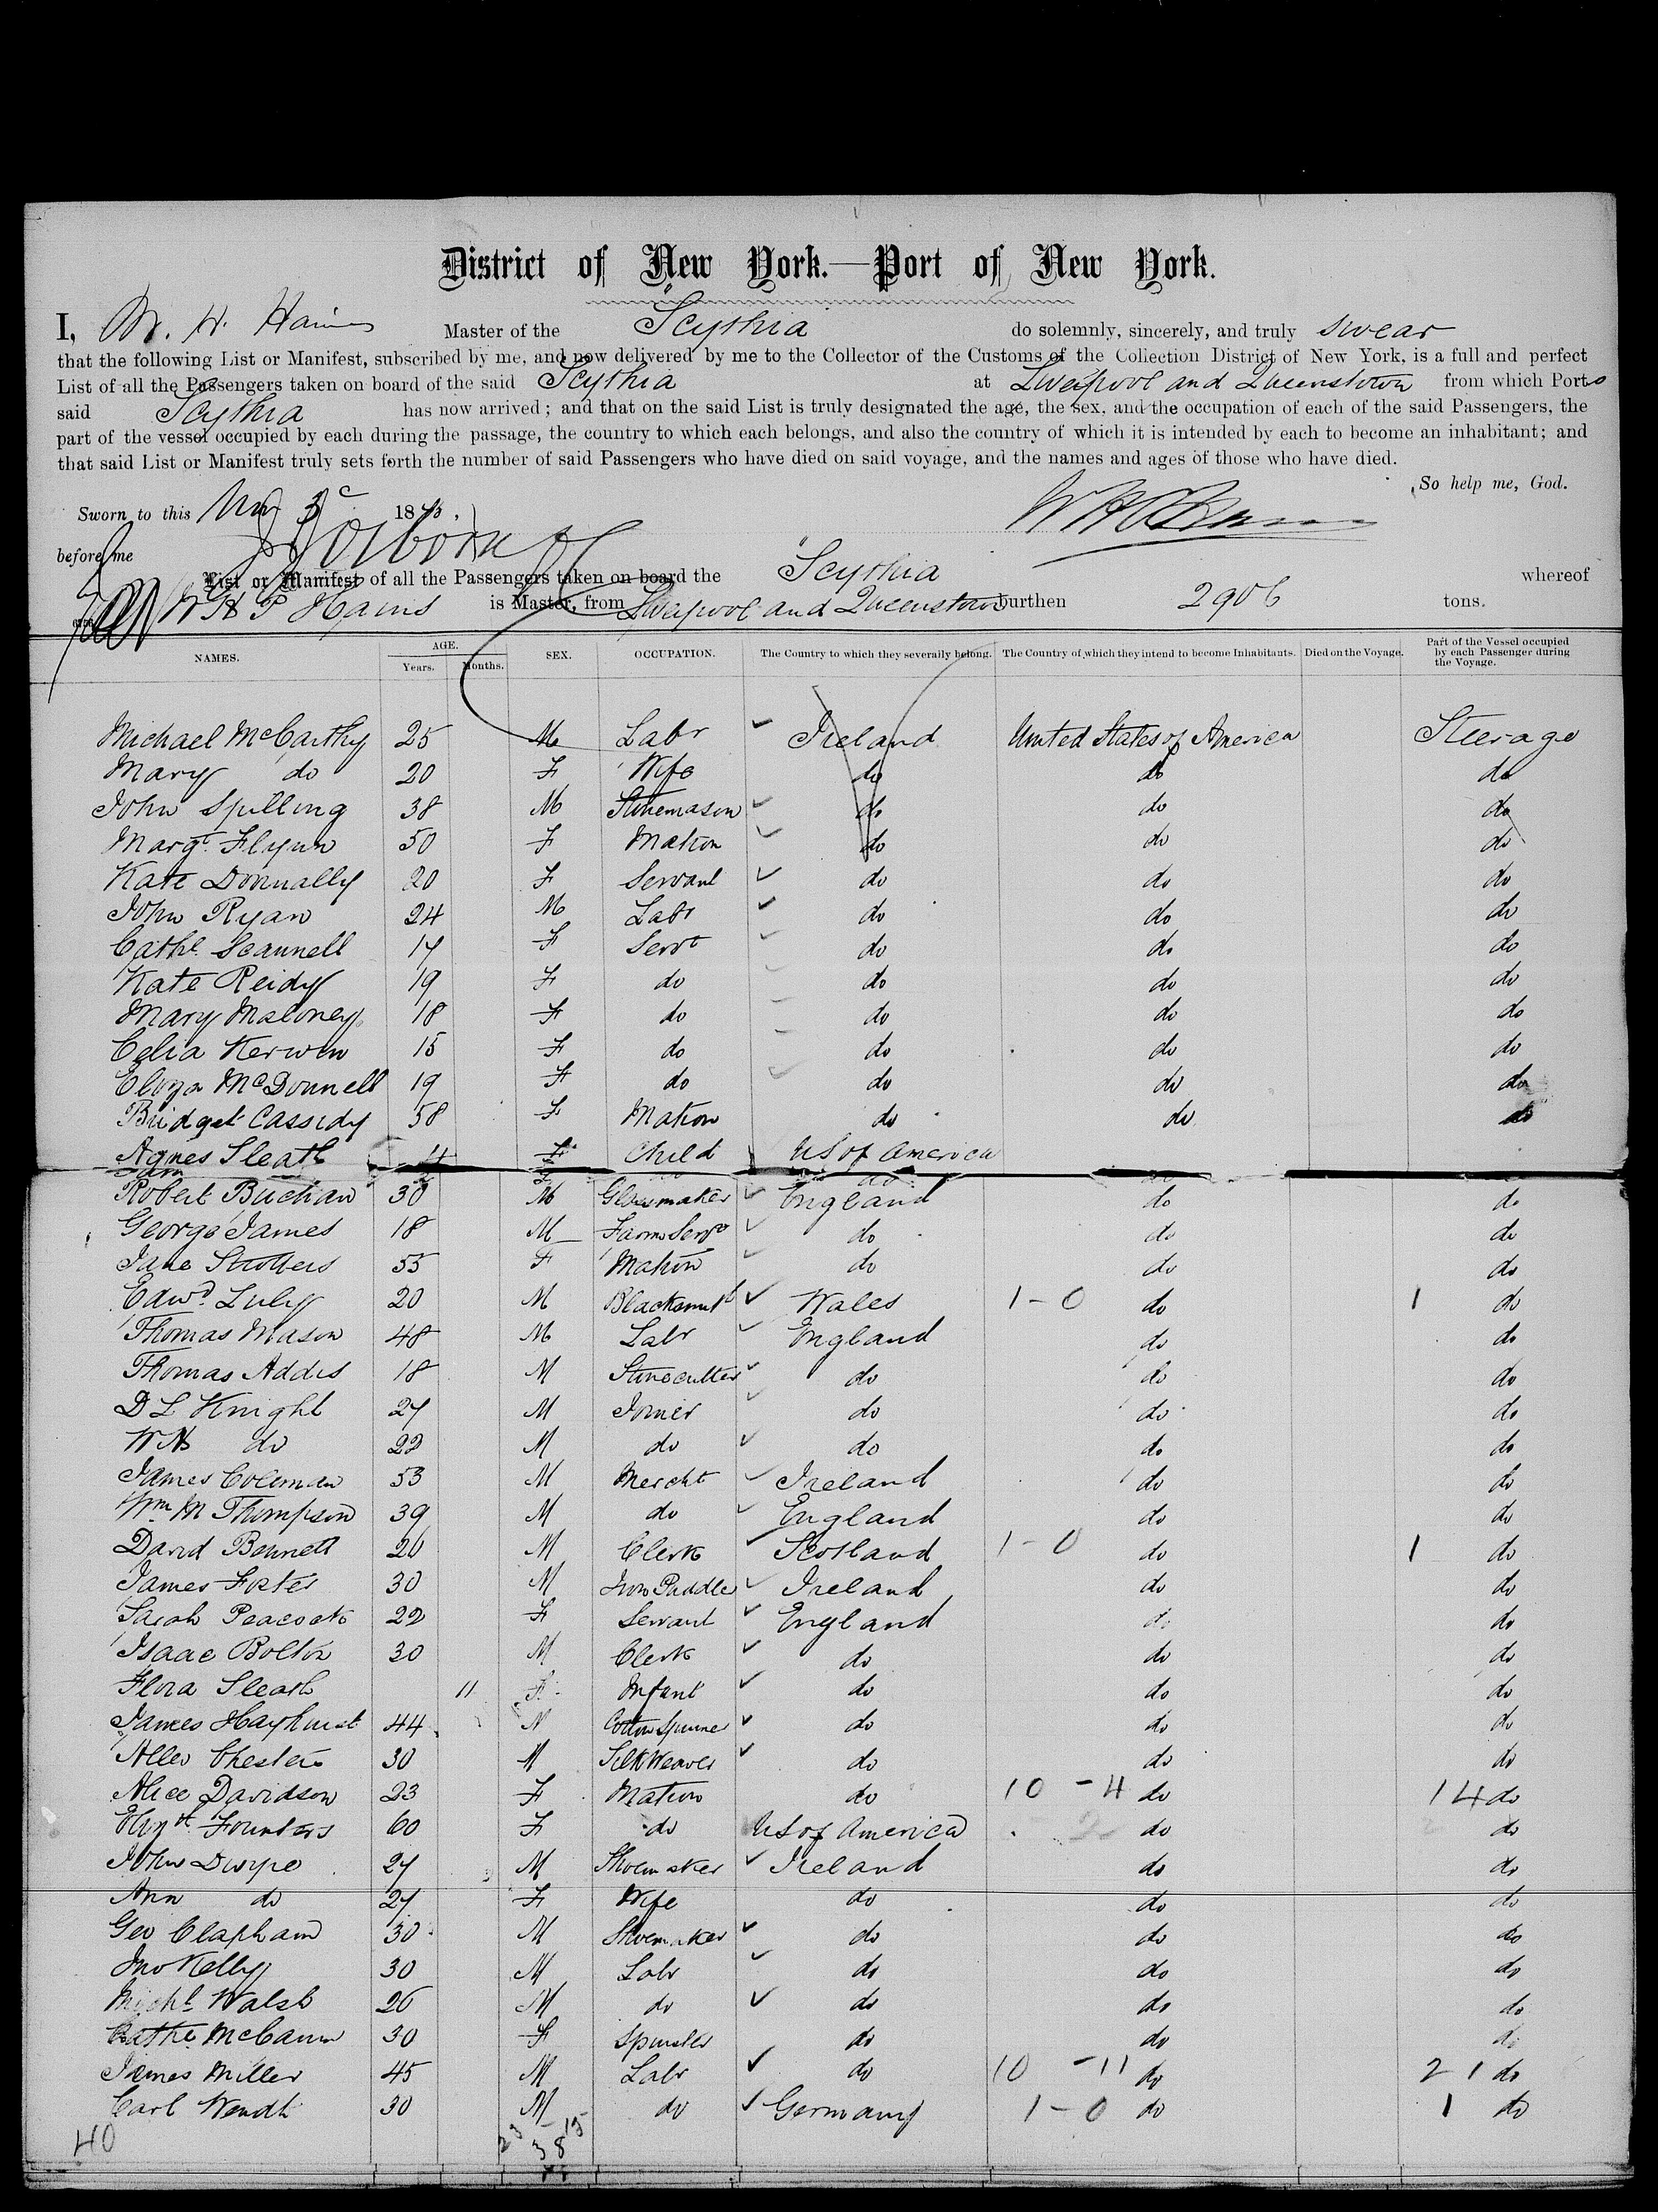 District of New York.—Port of New York.
I, W. H. Hains Master of the "Scythia do solemnly, sincerely, and truly swear
that the following List or Manifest, subscribed by me, and now delivered by me to the Collector of the Customs of the Collection District of New York, is a full and perfect
List of all the Passengers taken on board of the said Scythia at Liverpool and Queenstown from which Ports
said Scythia has now arrived; and that on the said List is truly designated the age, the sex, and the occupation of each of the said Passengers, the
part of the vessel occupied by each during the passage, the country to which each belongs, and also the country of which it is intended by each to become an inhabitant; and
that said List or Manifest truly sets forth the number of said Passengers who have died on said voyage, and the names and ages of those who have died.
So help me, God.
Sworn to this 3 187
before me
List or Manifest of all the Passengers taken on board the "Scythia whereof
W H P Hains is Master, from Liverpool and Queenstown burthen 2906 tons.
NAMES. AGE. Years. Months. SEX. OCCUPATION. The Country to which they severally belong. The Country of which they intend to become Inhabitants. Died on the Voyage. Part of the Vessel occupied by each Passenger during the Voyage.
Michael McCarthy 25 M Labr Ireland United States of America Steerage
Mary do 20 F Wife do do do
John Spilling 38 M Stonemason do do do
Margt Flynn 50 F Matron do do do
Kate Donnally 20 F Servant do do do
John Ryan 24 M Labr do do do
Cathe Scannell 17 F Servt do do do
Kate Reidy 19 F do do do do
Mary Maloney 18 F do do do do
Celia Kerwin 15 F do do do do
Eliza McDonnell 19 F do do do do
Bridget Cassidy 58 F Matron do do do
Agnes Sleath 4 F Child US of America
Robert Buchan 30 M Glassmaker England do do
George James 18 M Farm Servt do do do
Jane Strotters 55 F Matron do do do
Edwd Luly 20 M Blacksmith Wales 1-0 do 1 do
Thomas Mason 48 M Labr England do do
Thomas Addis 18 M Stonecutter do do do
D L Knight 27 M Joiner do do do
W H do 22 M do do do do
James Coleman 53 M Mercht Ireland do do
Wm M Thompson 39 M do England do do
David Bennett 20 M Clerk Scotland 1-0 do 1 do
James Foster 30 M Iron Puddler Ireland do do
Sarah Peacock 22 F Servant England do do
Isaac Bolton 30 M Clerk do do do
Flora Sleath 11 F Infant do do do
James Hayhurst 44 M Cotton Spinner do do do
Allen Chester 30 M Silk Weaver do do do
Alice Davidson 23 F Matron do 10-4 do 14 do
Elizth Founters 60 F do US of America do do
John Dwype 27 M Shoemaker Ireland do do
Ann do 27 F Wife do do do
Geo Clapham 30 M Shoemaker do do do
Jno Kelly 30 M Labr do do do
Michl Walsh 26 M do do do do
Cathe McCann 30 F Spinster do do do
James Miller 45 M Labr do 10-11 do 21 do
Carl Wendt 30 M do Germany 1-0 do 1 do
40